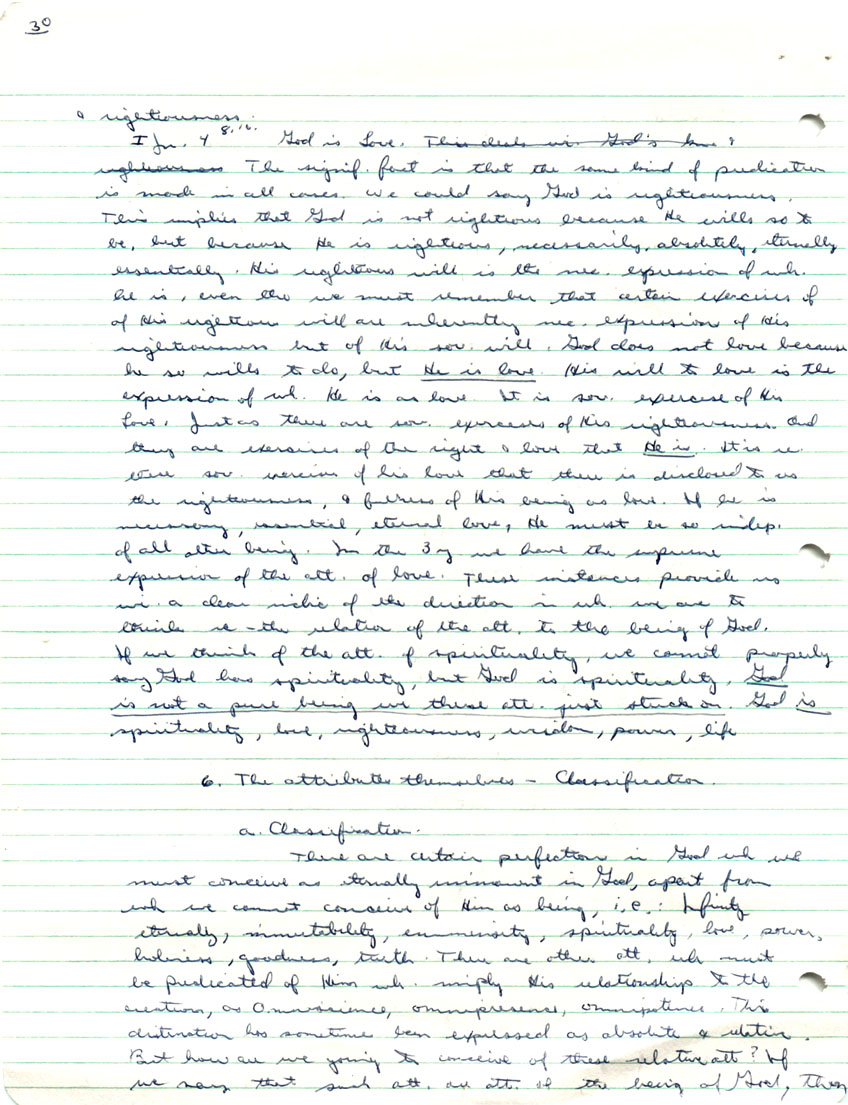 30
& righteousness.
I Jn. 4 8,16. God is Love. This deals wi. God's love &
righteousness The signif. fact is that the same kind of predication
is made in all cases. We could say God is righteousness.
This implies that God is not righteous because He wills so to
be, but because He is righteous, necessarily, absolutely, eternally
essentially. His righteous will is the nec. expression of wh.
he is, even tho we must remember that certain exercises of
of His righteous will are inherently nec. expression of His
righteousness but of His sov. will. God does not love because
he so wills to do, but He is love. His will to love is the
expression of wh. He is as love. It is sov. exercise of His
Love. Just as there are sov. exercises of His righteousness. And
they are exercises of the right & love that He is. It is in
these sov exercises of his love that there is disclosed to us
the righteousness, & fulness of His being as love. If he is
necessary, essential, eternal love, He must be so indep.
of all other being. In the 3 y we have the supreme
expression of the att. of love. These instances provide us
wi. a clear indic of the direction in wh. we are to
think re - the relation of the att. to the being of God.
If we think of the att. of spirituality, we cannot properly
say God has spirituality, but God is spirituality. God
is not a pure being wi these att. just stuck on. God is
spirituality, love, righteousness, wisdom, power, life
6. The attributes themselves - Classification.
a. Classification.
There are certain perfections in God wh we
must conceive as eternally immanent in God, apart from
wh we cannot conceive of Him as being, i.e.: Infinity
eternally, immutability, immensity, spirituality, love, power,
holiness, goodness, truth. There are other att. wh must
be predicated of Him wh. imply His relationships to the
creation, as Omniscience, omnipresence, omnipotence. This
distinction has sometimes been expressed as absolute & relative.
But how are we going to conceive of these relative att? If
we say that such att. are att. of the being of God, then